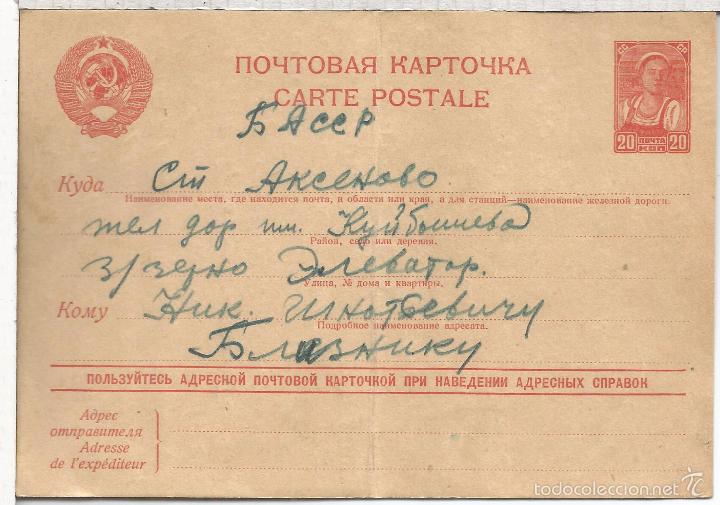 ПОЧТОВАЯ КАРТОЧКА
CARTE POSTALE
СС СР
20 ПОЧТА КОП 20
БАССР
Куда Ст Аксеново
Наименование места, где находится почта, и области или края, а для станций—наименование железной дороги.
жел дор им. Куйбышева
Район, село или деревня.
з/зерно Элеватор.
Улица, № дома и квартиры.
Кому Ник. Игнатьевичу
Подробное наименование адресата.
Близнику
ПОЛЬЗУЙТЕСЬ АДРЕСНОЙ ПОЧТОВОЙ КАРТОЧКОЙ ПРИ НАВЕДЕНИИ АДРЕСНЫХ СПРАВОК
Адрес
отправителя
Adresse
de l'expéditeur
todocoleccion.net